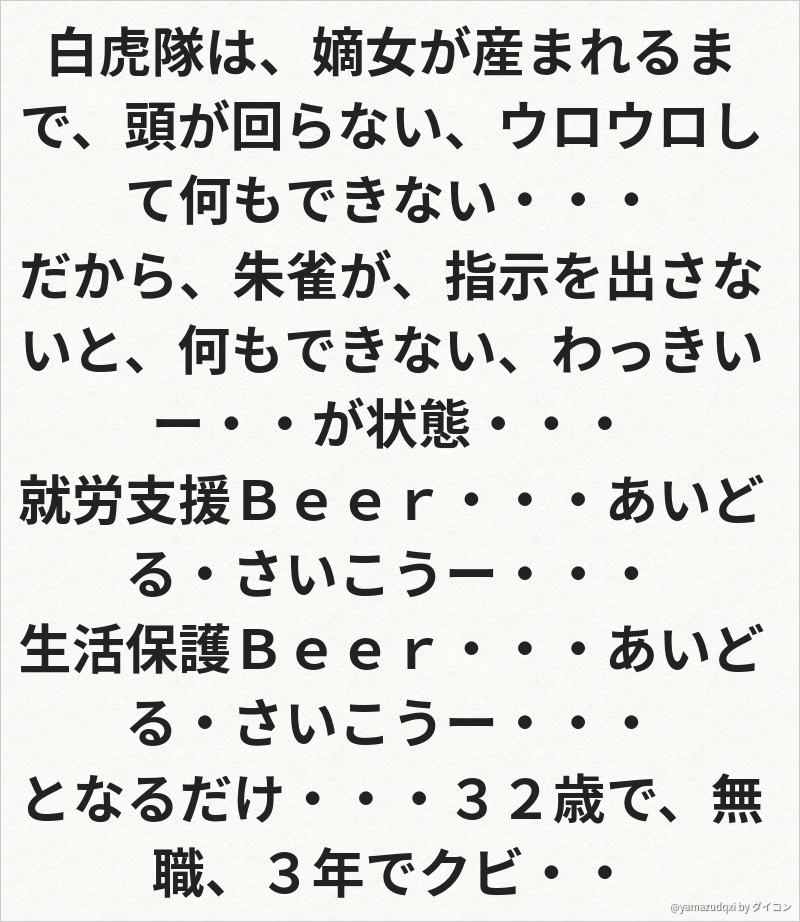 白虎隊は、嫡女が産まれるま
で、頭が回らない、ウロウロし
て何もできない・・・
だから、朱雀が、指示を出さな
いと、何もできない、わっきい
ー・・が状態・・・
就労支援Ｂｅｅｒ・・・あいど
る・さいこうー・・・
生活保護Ｂｅｅｒ・・・あいど
る・さいこうー・・・
となるだけ・・・３２歳で、無
職、３年でクビ・・
@yamazudqxi by ダイコン